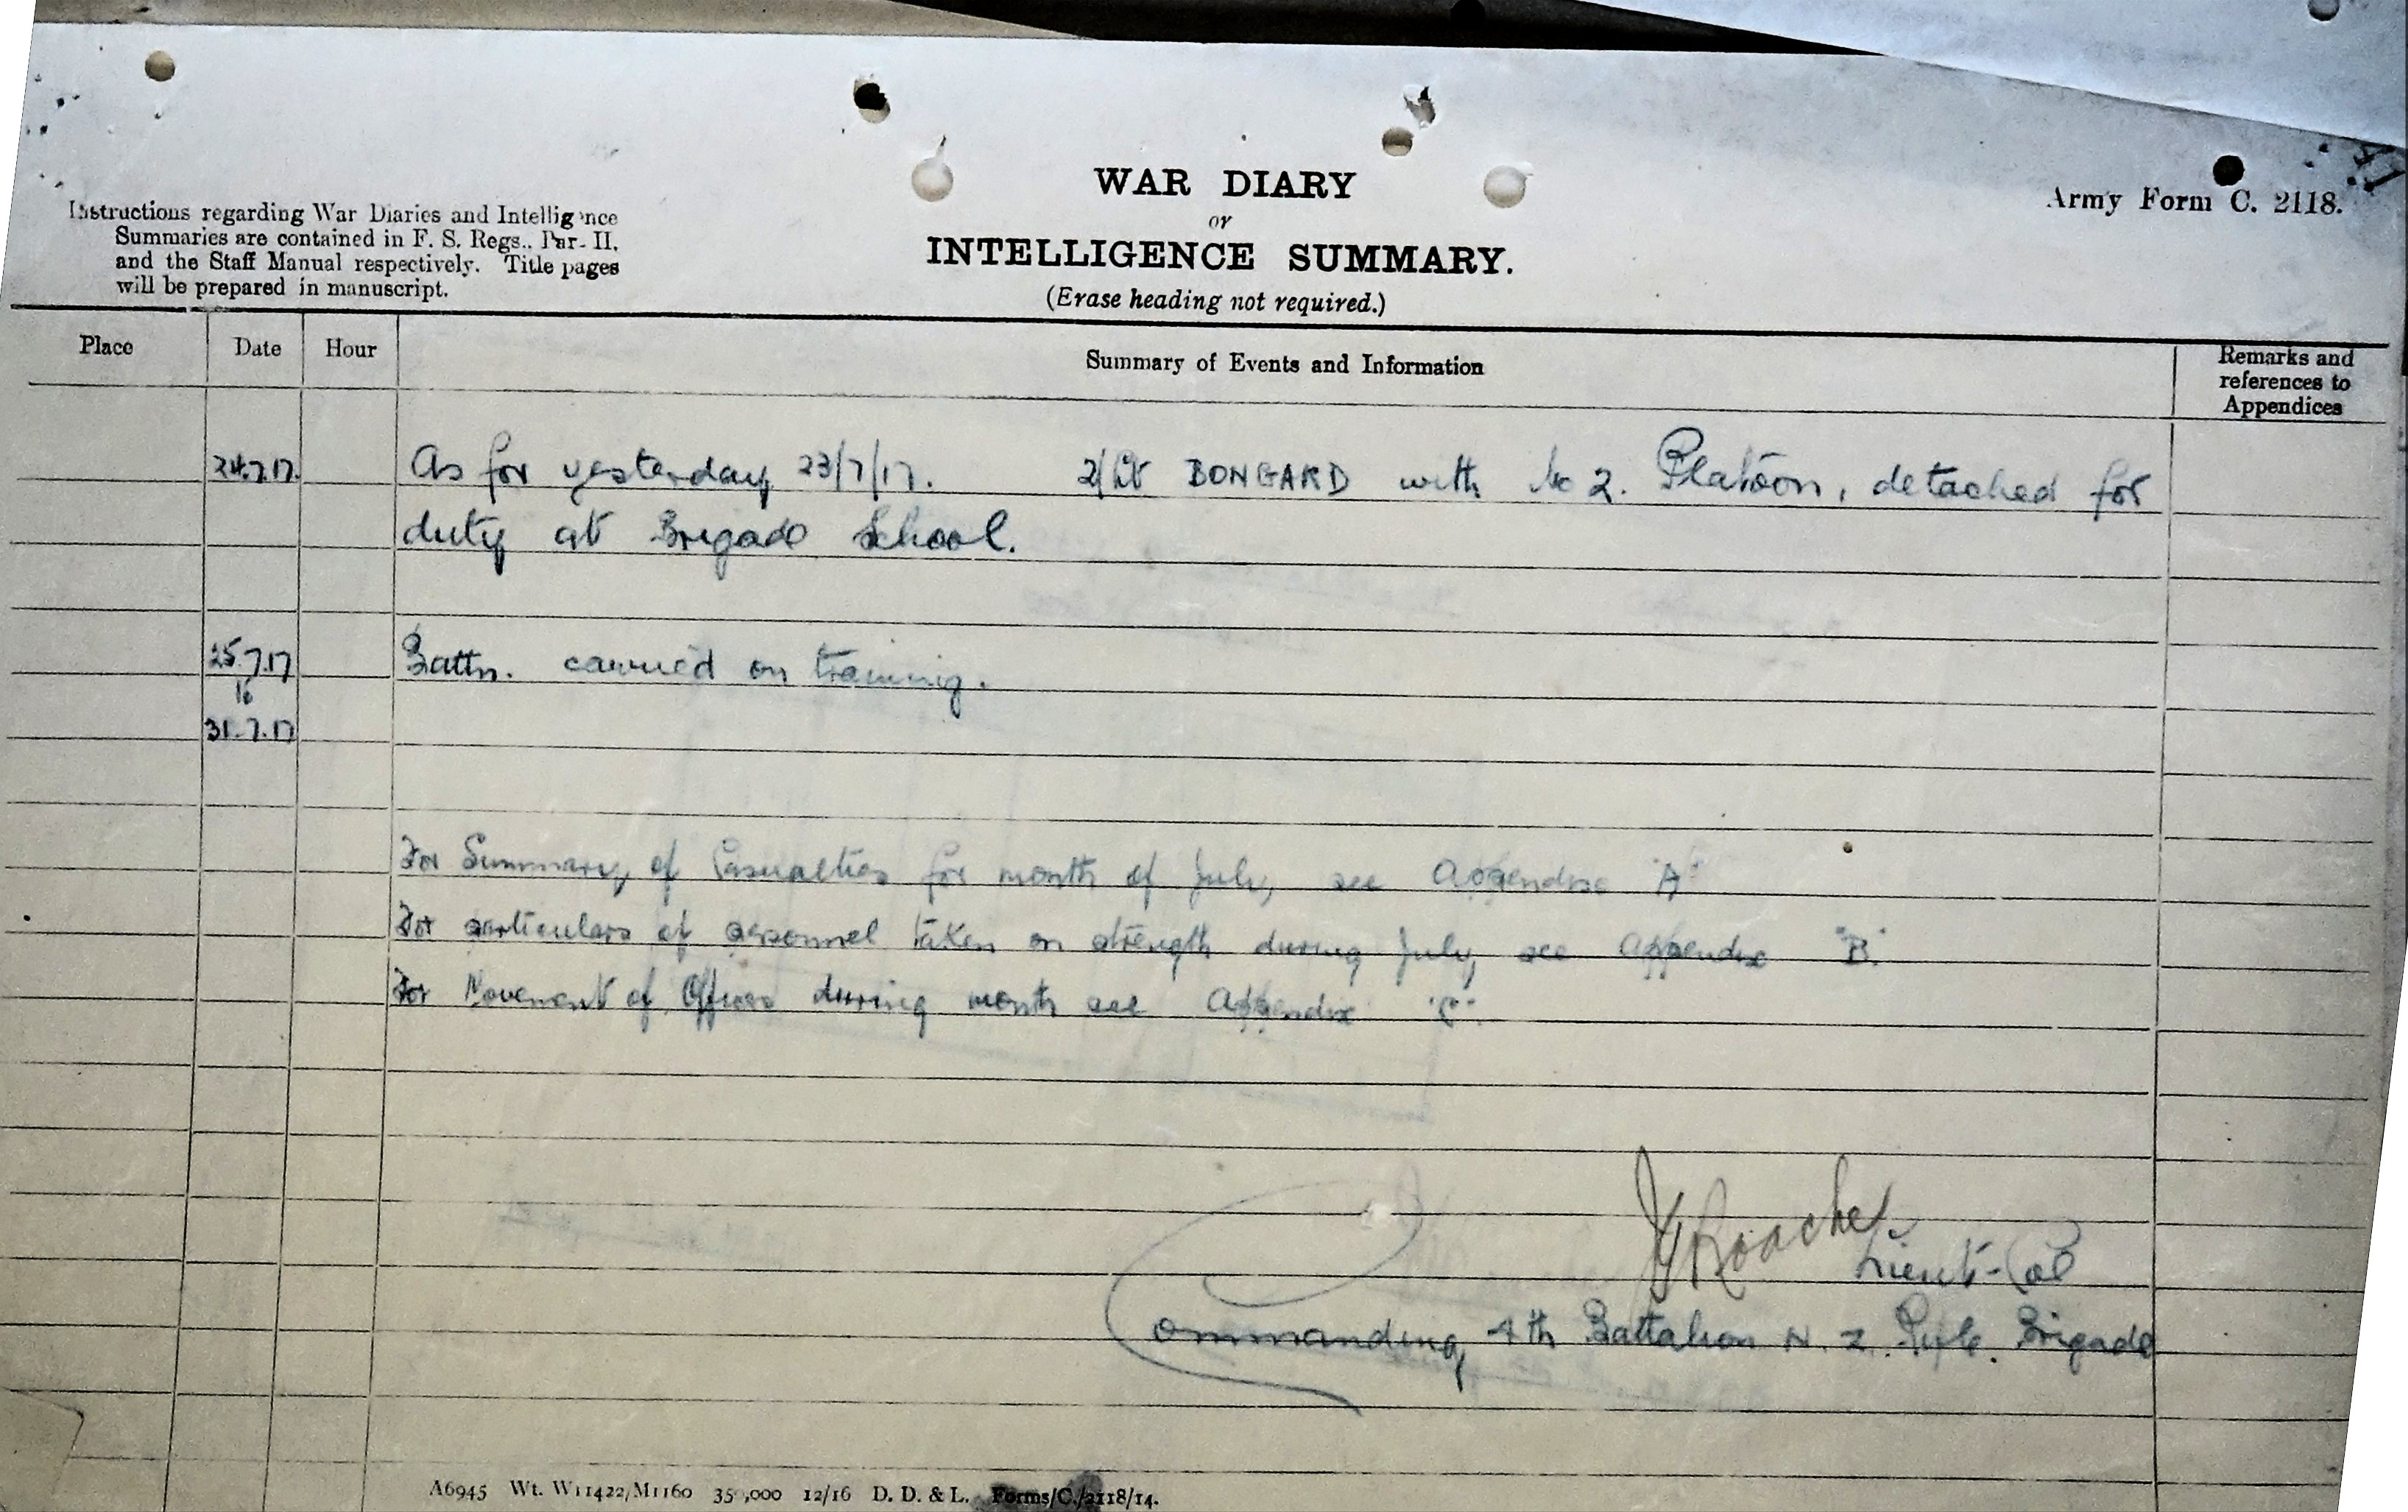 Instructions regarding War Diaries and Intelligence
Summaries are contained in F. S. Regs., Par- II,
and the Staff Manual respectively. Title pages
will be prepared in manuscript.
WAR DIARY
or
INTELLIGENCE SUMMARY.
(Erase heading not required.)
Army Form C. 2118.
Place Date Hour Summary of Events and Information Remarks and references to Appendices
24.7.17. As for yesterday 23/7/17. 2/Lt BONGARD with No 2. Platoon, detached for
duty at Brigade School.
25.7.17 Battn. carried on training.
to
31.7.17
For Summary of Casualties for month of July, see Appendix "A"
For particulars of personnel taken on strength during July, see Appendix "B".
For Movement of Officers during month see Appendix "C".
Roache Lieut-Col
Commanding 4th Battalion N. Z. Rifle Brigade
A6945 Wt. W11422/M1160 35 ,000 12/16 D. D. & L. Forms/C./2118/14.